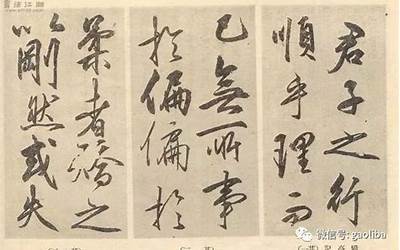 君子之行
順乎理而
已無所事
於偏偏於
柔者矯之
以剛然或失
微信号: gaoliba